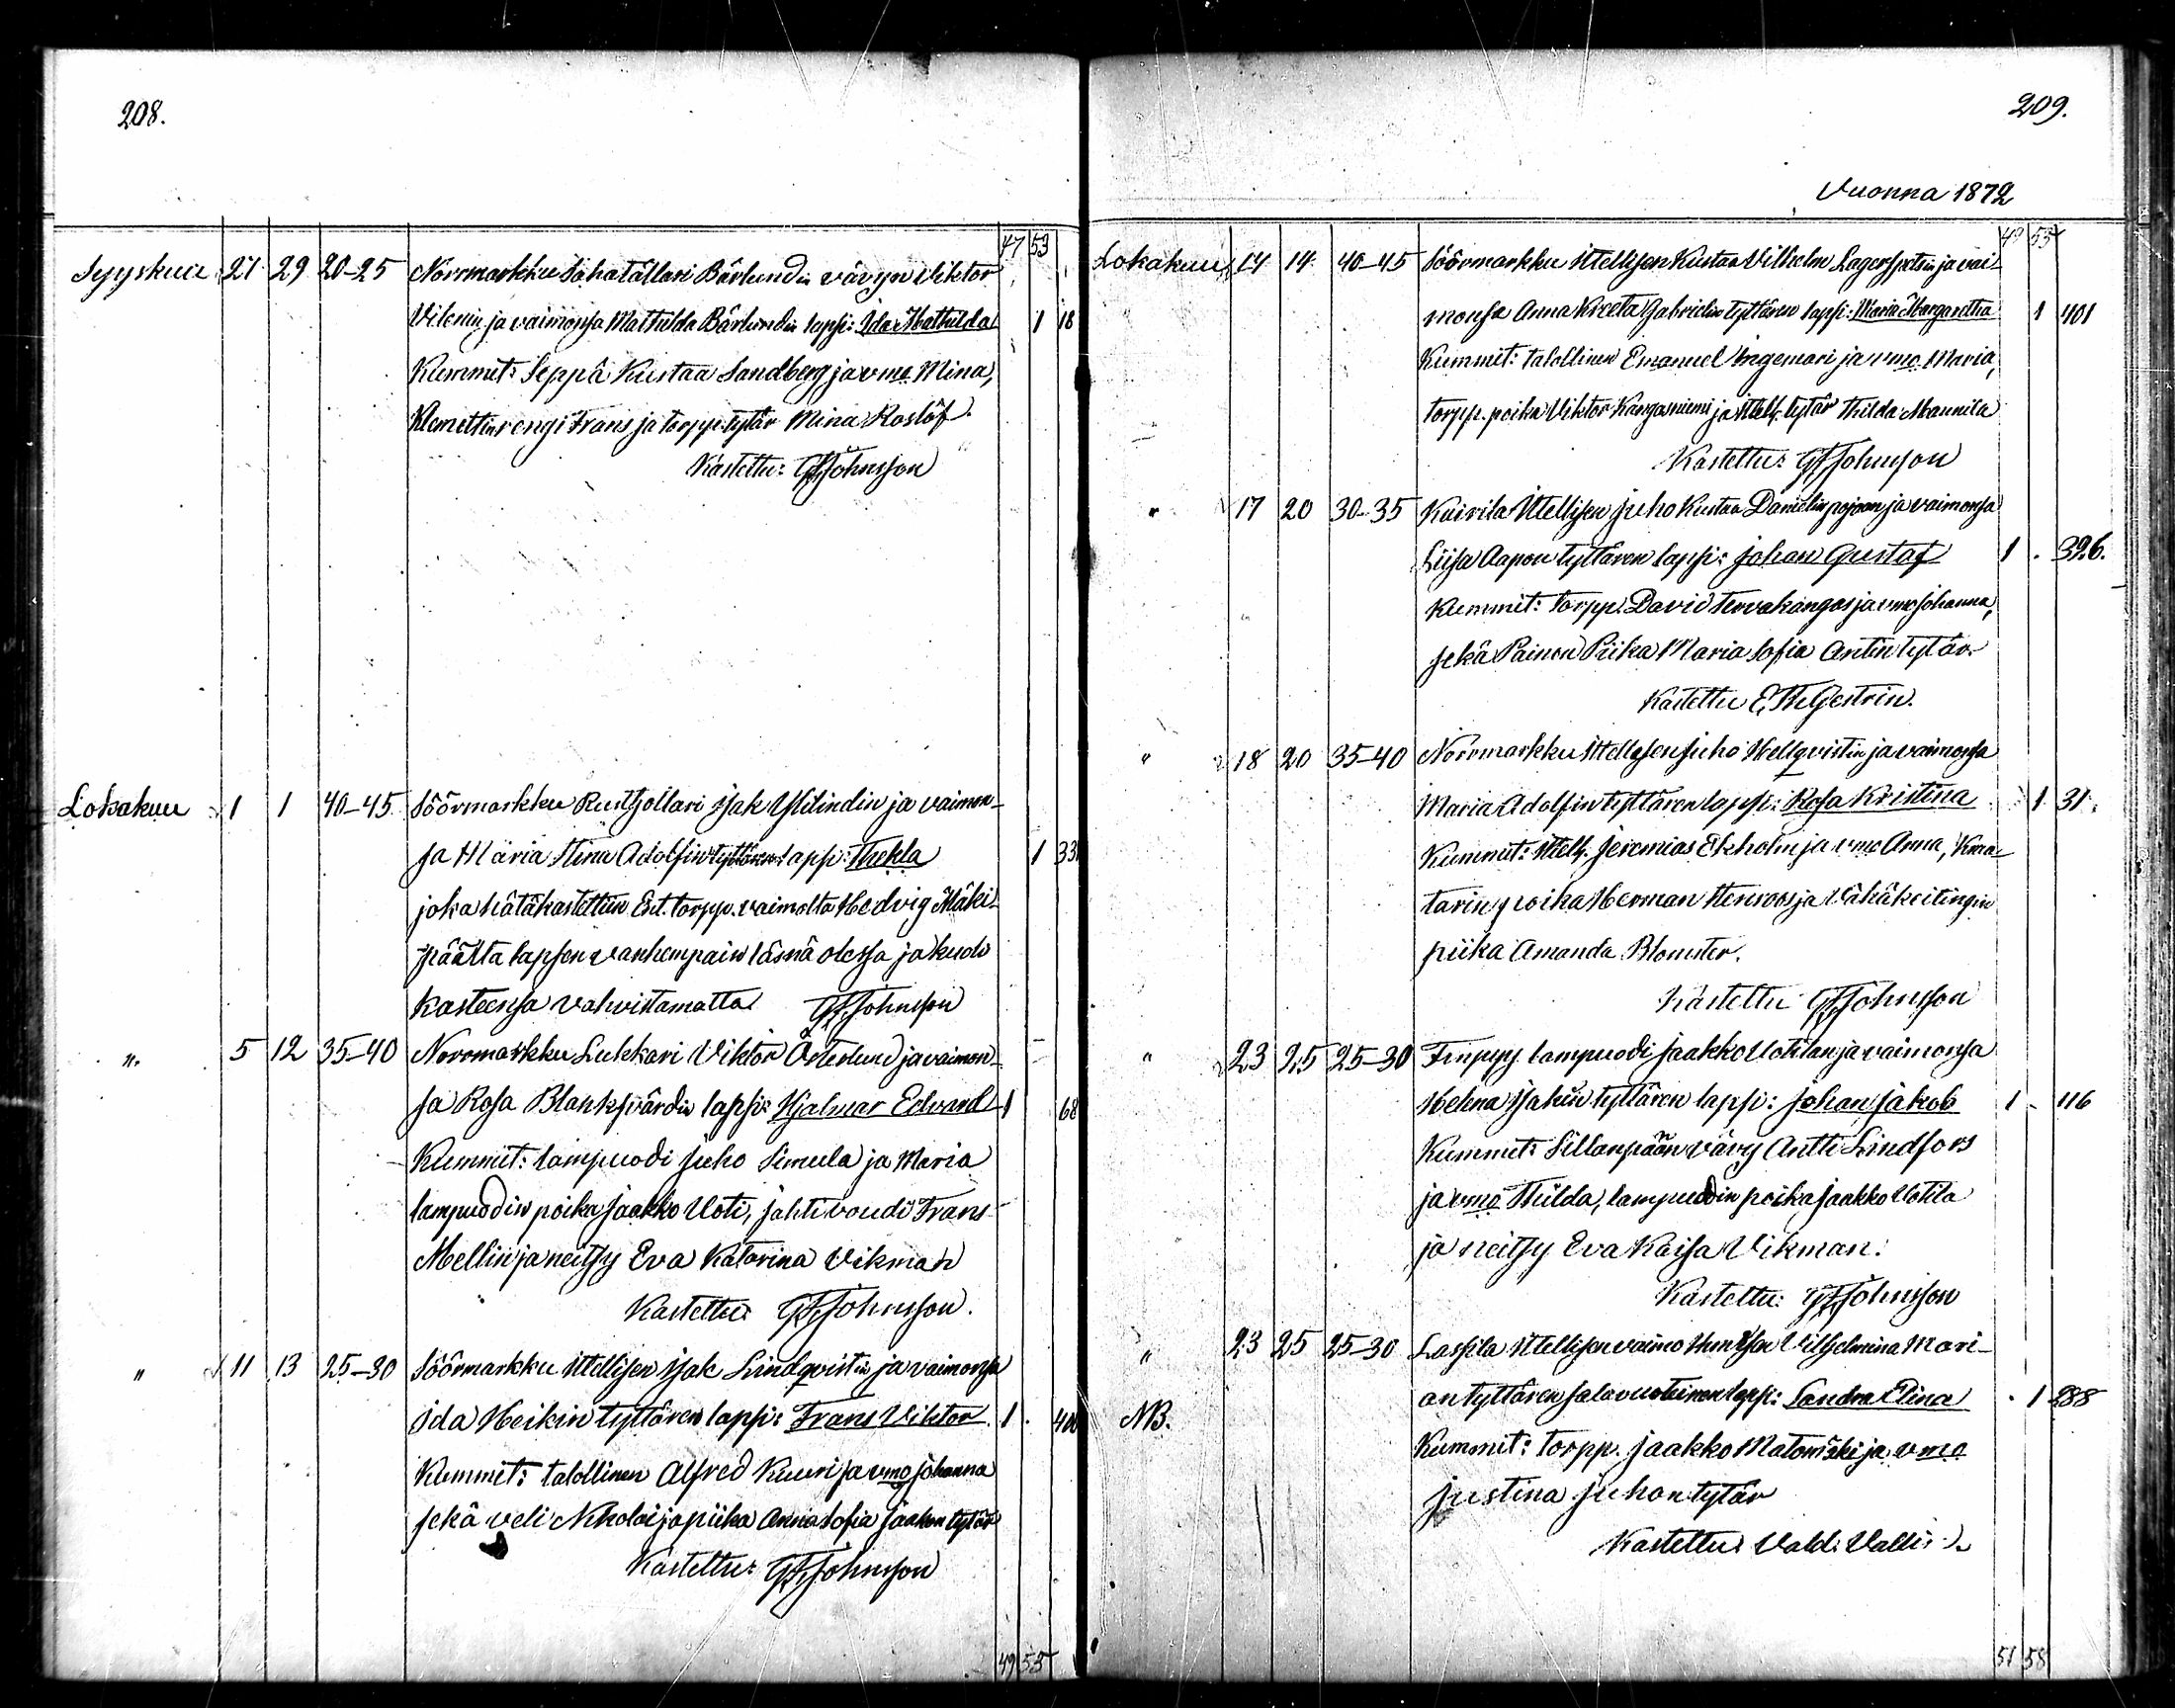 208.
47 53
Syyskuu 27 29 20-25 Norrmarkku Sahatállari Bärlundin vävyn Viktor
Vilenin ja vaimonsa Mathilda Bärlundin lapsi: Ida Mathilda 1 18
Kummit: Seppä Kustaa Sandberg ja vmo Mina,
Klemettin rengi Frans ja torpp. tytär Mina Roslöf.
Kastettu: GFJohnsson
Lokakuu 1 1 40-45 Söörmarkku Rusthollari Isak Ylilindin ja vaimon-
sa Maria Stina Adolfin tyttären lapsi: Thekla 1 33
joka hätäkastettiin Ent. torpp. vaimolta Hedvig Mäki-
päältä lapsen vanhempain läsnä olessa ja kuoli
kasteensa vahvistamatta GFJohnsson
". 5 12 35-40 Norrmarkku Lukkari Viktor Österlund ja vaimon-
sa Rosa Blanksvärdin lapsi: Hjalmar Edvard 1 68
Kummit: lampuodi Juho Simula ja Maria
lampuodin poika Jaakko Uoti, jahtivouti Frans
Mellin ja neitsy Eva Katarina Vikman
Kastettu: GFJohnsson.
" 11 13 25-30 Söörmarkku Ittellisen Isak Lindqvistin ja vaimonsa
Ida Heikin tyttären lapsi: Frans Viktor 1 400
Kummit: talollinen Alfred Kuuri ja vmo Johanna
sekä veli Nikolai ja piika Anna Sofia Jaakon tytär
Kastettu: GFJohnsson
49 55
209.
Vuonna 1872
49 55
Lokakuu 14 14 40-45 Söörmarkku Ittellisen Kustaa Vilhelm Lagerspetsin ja vai-
monsa Anna Kreeta Gabrielin tyttären lapsi: Maria Margaretha 1 401
Kummit: talollinen Emanuel Ingemari ja vmo Maria,
torpp. poika Viktor Kangasniemi ja Ittell. tytär Hilda Mannila
Kastettu: GFJohnsson
" 17 20 30-35 Kairila Ittellisen Juho Kustaa Danielin pojan ja vaimonsa
Liisa Aapon tyttären lapsi: Johan Gustaf 1 . 326.
Kummit: Torpp. David Tervakangas ja vmo Johanna,
sekä Painon Piika Maria Sofia Antin tytär
Kastettu E. Th Gestrin.
" 18 20 35-40 Norrmarkku Ittellisen Juho Hellqvistin ja vaimonsa
Maria Adolfin tyttären lapsi: Rosa Kristina 1 31.
Kummit: Ittell. Jeremias Ekholm ja vmo Anna, Kraa-
tarin poika Herman Stenroos ja Vähäkeitingin
piika Amanda Blomster.
Kastettu GFJohnsson
" 23 25 25-30 Finpyy lampuodi Jaakko Uotilan ja vaimonsa
Helena Isakin tyttären lapsi: Johan Jakob 1 116
Kummit: Sillanpään vävy Antti Lindfors
ja vmo Hilda, lampuodin poika Jaakko Uotila
ja neitsy Eva Kaisa Vikman.
Kastettu: GFJohnsson
" 23 25 25-30 Lassila Ittellisen vaimo Vilhelmina Mari-
NB. an tyttären salavuoteinen lapsi: Sandra Elina . 1 288
Kummit: torpp. Jaakko Matomäki ja vmo
Justina Juhon tytär
Kastettu: Vald: Valli:
51 58